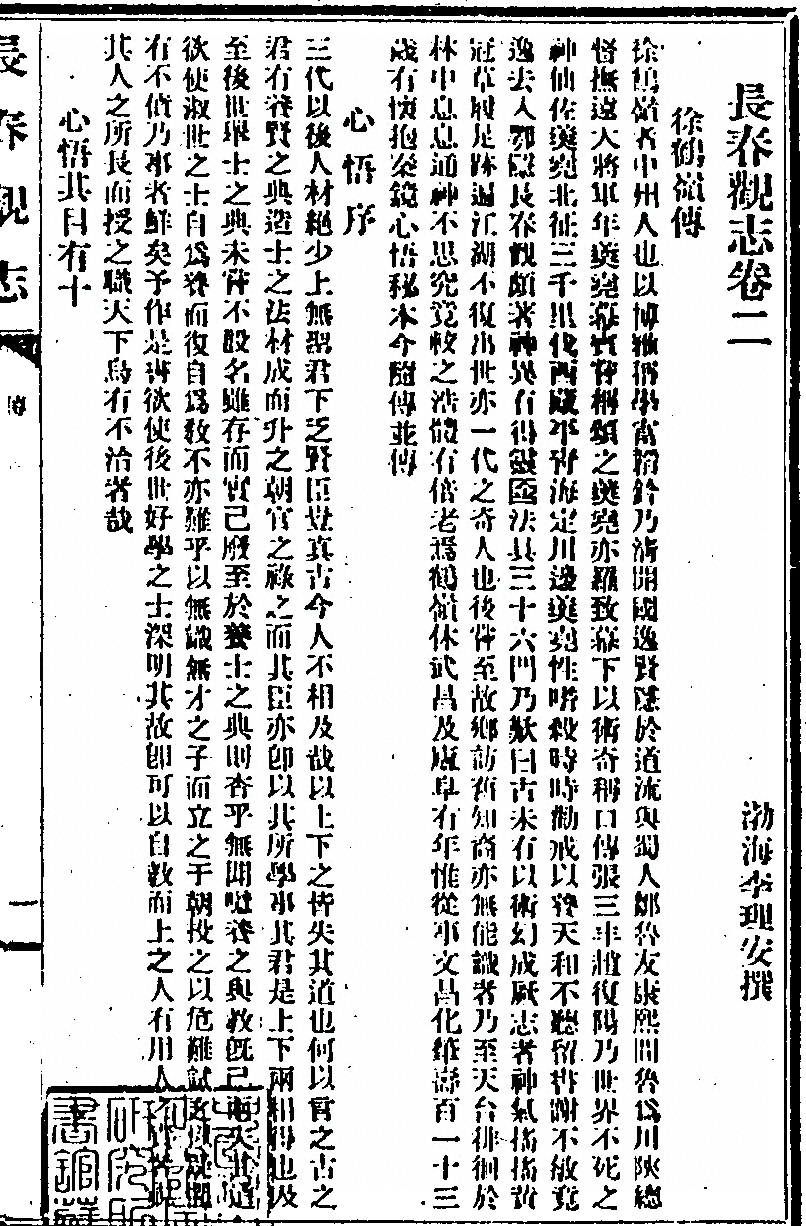 長春觀志卷二
渤海李理安撰
徐鶴嶺傳
徐鶴嶺者中州人也以博雅稱學富韜鈐乃淸開國逸賢隱於道流與蜀人鄒魯友康熙間魯爲川陝總
督撫遠大將軍年羹堯幕賓奪稱頌之羹堯亦羅致幕下以術奇稱口傳張三丰趙復陽乃世界不死之
神仙佐羹堯北征三千里伐西藏平靑海定川邊羹堯性嗜殺時時勸戒以養天和不聽留書謝不敏竟
逸去入鄂隱長春觀頗著神異有得籙圖法具三十六門乃歎曰古未有以術幻成厥志者神氣搖搖黃
冠草履足跡遍江湖不復出世亦一代之奇人也後嘗至故鄉訪舊知商亦無能識者乃至天台徘徊於
林中息息通神不思究竟較之浩髓有倍老焉鶴嶺休武昌及廬阜有年惟從事文昌化鸞壽百一十三
歲有懷抱秦鏡心悟秘本今隨傳並傳
心悟序
三代以後人材絕少上無聖君下乏賢臣豈眞古今人不相及哉以上下之皆失其道也何以言之古之
君有養賢之典造士之法材成而升之朝官之祿之而其臣亦卽以其所學事其君是上下兩相得也及
至後世舉士之典未嘗不設名雖存而實已廢至於養士之典則杳乎無聞噫養之與敎旣已兩失其道
欲使淑世之士自爲養而復自爲敎不亦難乎以無識無才之子而立之于朝投之以危難試
有不僨乃事者鮮矣予作是書欲使後世好學之士深明其故卽可以自敎而上之人有用人
其人之所長而授之職天下烏有不治者哉
心悟其目有十
長春觀志
傳
一